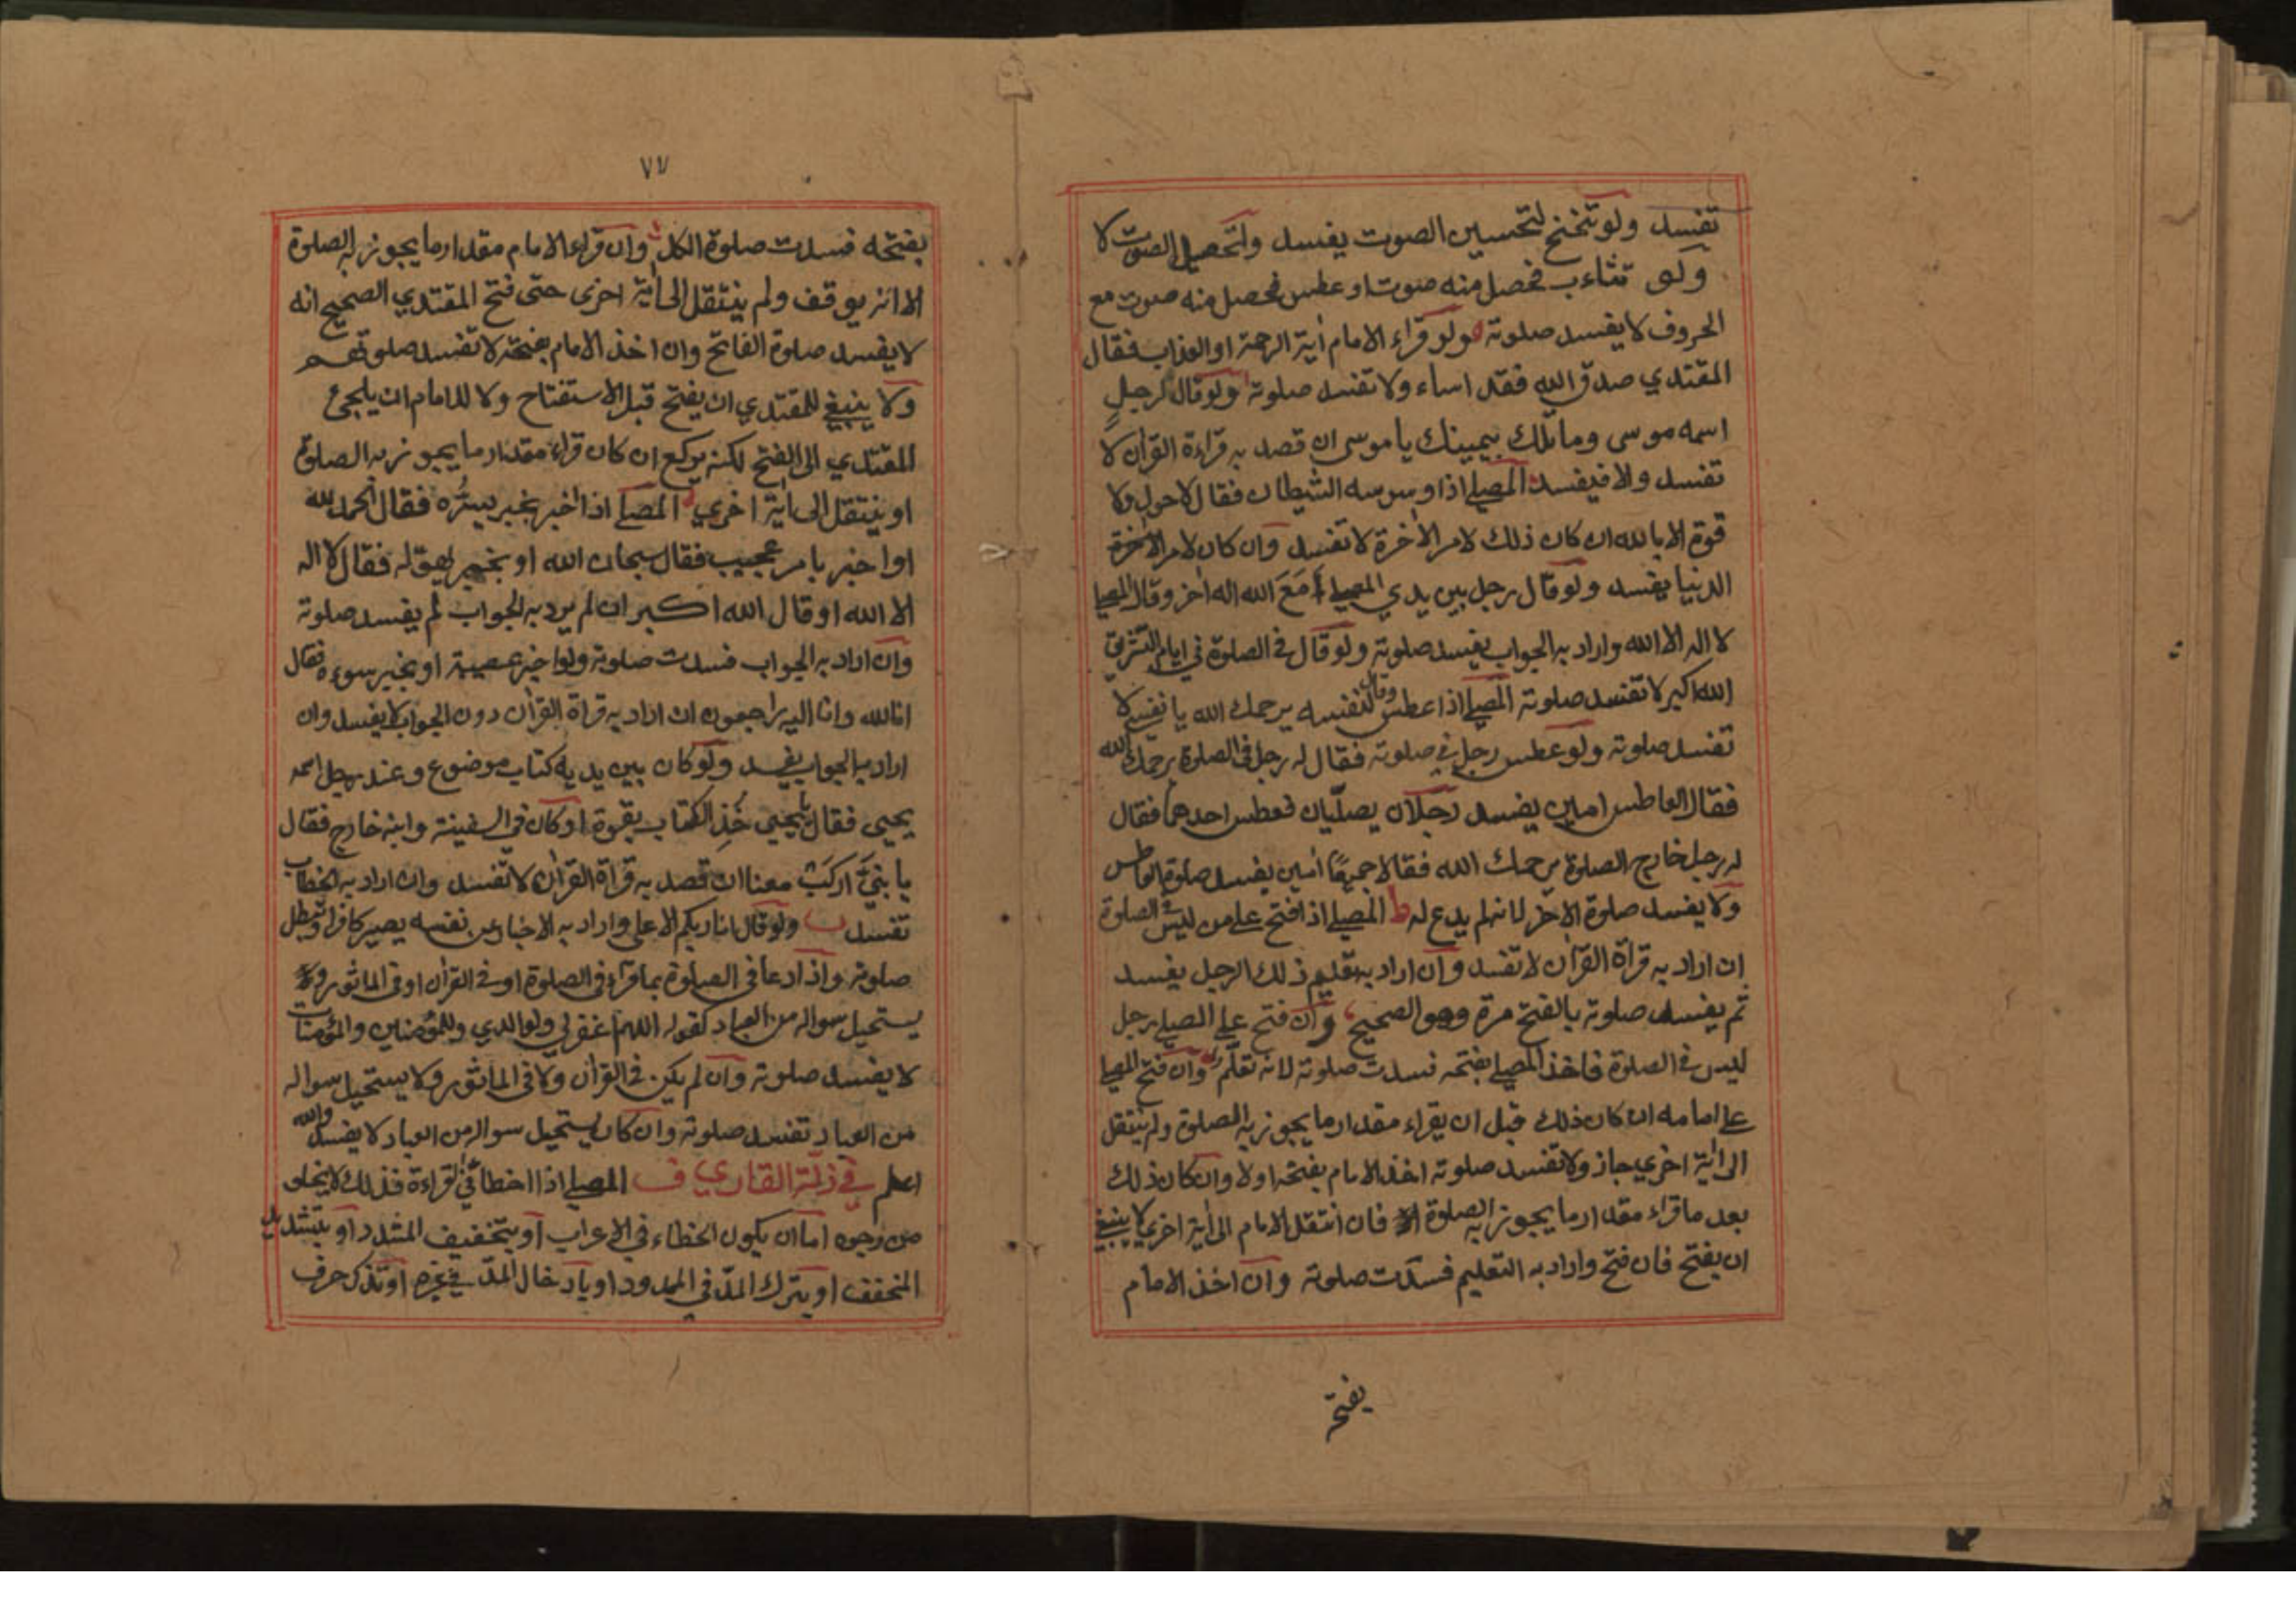 تفسد ولو تنحنح لتحسين الصوت يفسد ولتحصيل الصوت لا
ولو تثاءب فحصل منه صوت او عطس فحصل منه صوت مع
الحروف لا يفسد صلوته ولو قراء الامام أية الرحمة او العذاب فقال
المقتدي صدق الله فقد اساء ولا تفسد صلوته ولو قال لرجل
اسمه موسى وما تلك بيمينك يا موسى ان قصد به قراءة القران لا
تفسد والا فيفسد المصلي اذا وسوسه الشيطان فقال لا حول ولا
قوة الا بالله ان كان ذلك لامر الأخرة لا تفسد وان كان لامر
الدنيا يفسد ولو قال رجل بين يدي المصلي أمع الله اله أخر وقال المصلي
لا اله الا الله واراد به الجواب يفسد صلوته ولو قال في الصلوة في ايام التشريق
الله اكبر لا تفسد صلوته المصلي اذا عطس وقال لنفسه يرحمك الله يا نفسي لا
تفسد صلوته ولو عطس رجل في صلوته فقال له رجل في الصلوة يرحمك الله
فقال العاطس امين يفسد رجلان يصليان فعطس احدهما فقال
له رجل خارج الصلوة يرحمك الله فقالا جميعًا أمين يفسد صلوة العاطس
ولا يفسد صلوة الأخر لانه لم يدع له ط المصلي اذا فتح على من ليس في الصلوة
ان اراد به قرأة القرأن لا تفسد وان اراد به تعليم ذلك الرجل يفسد
ثم يفسد صلوته بالفتح مرة وهو الصحيح وان فتح على المصلي رجل
ليس في الصلوة فاخذ المصلي بفتحه فسدت صلوته لانه تعلم وان فتح المصلي
على امامه ان كان ذلك قبل ان يقراء مقدار ما يجوز به الصلوة ولم ينتقل
الى أية اخري جاز ولا تفسد صلوته اخذ الامام بفتحه اولا وان كان ذلك
بعد ما قراء مقدار ما يجوز به الصلوة فان انتقل الامام الى أية اخري لا ينبغي
ان يفتح فان فتح واراد به التعليم فسدت صلوته وان اخذ الامام
بفتحه
٧٧
بفتحه فسدت صلوة الكل وان قراء الامام مقدار ما يجوز به الصلوة
الا انه يوقف ولم ينتقل الى أية اخرى حتى فتح المقتدي الصحيح انه
لا يفسد صلوة الفاتح وان اخذ الامام بفتحه لا تفسد صلوتهم
ولا ينبغي للمقتدي ان يفتح قبل الاستفتاح ولا للامام ان يلجئ
المقتدي الى الفتح لكنه يركع ان كان قراء مقدار ما يجوز به الصلوة
او ينتقل الى أية اخري المصلي اذا اخبر بخبر يسرُّه فقال الحمد لله
او اخبر بامر عجيب فقال سبحان الله او بخبر فقال لا اله
الا الله او قال الله اكبر ان لم يرد به الجواب لم يفسد صلوته
وان اراد به الجواب فسدت صلوته ولو اخبر بمصيبة او بخبر سوء فقال
انا لله وانا اليه راجعون ان اراد به قرأة القرأن دون الجواب لا يفسد وان
اراد به الجواب يفسد ولو كان بين يديه كتاب موضوع وعند رجل اسمه
يحيى فقال يا يحيى خُذِ الكتاب بقوة او كان في السفينة وابنه خارج فقال
يا بنيَّ اركب معنا ان قصد به قرأة القرأن لا تفسد وان اراد به الخطاب
تفسد ولو قال انا ربكم الاعلى واراد به الاخبار عن نفسه يصير كافرا وتبطل
صلوته واذا دعا في الصلوة بما قراء في الصلوة او في القرأن او في الماثور ولا
يستحيل سواله من العباد كقوله اللهم اغفر لي ولوالدي وللمؤمنين والمؤمنات
لا يفسد صلوته وان لم يكن في القرأن ولا في الماثور ولا يستحيل سواله
من العباد تفسد صلوته وان كان يستحيل سواله من العباد لا يفسد والله
اعلم في زلة القاري ف المصلي اذا اخطأ في القراءة فذلك لا يخلو
من وجوه اما ان يكون الخطاء في الاعراب او بتخفيف المشدد او بتشديد
المخفف او بترك المدّ في الممدود او بادخال المدّ في غيره حرف